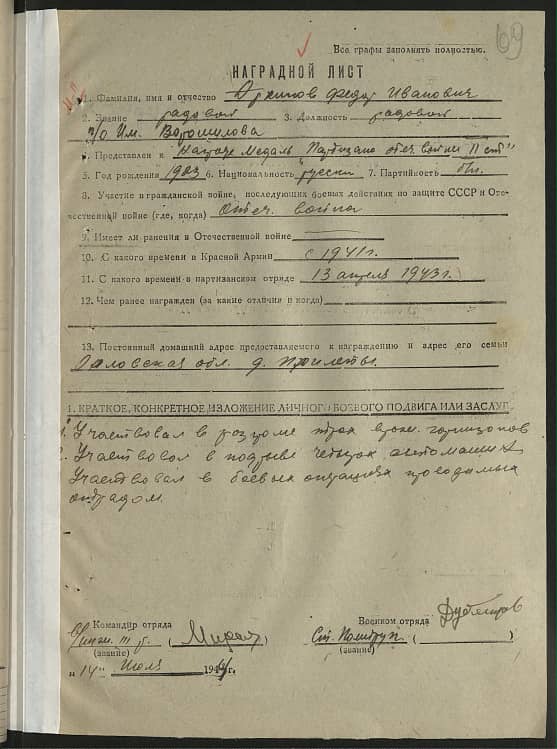 69
Все графы заполнять полностью.
НАГРАДНОЙ ЛИСТ
1. Фамилия, имя и отчество Архипов Федор Иванович
2. Звание рядовой 3. Должность рядовой
п/о Им. Ворошилова
4. Представлен к Награде Медаль "Партизана отеч. войны II ст"
5. Год рождения 1903 6. Национальность русский 7. Партийность б/п.
8. Участие в гражданской войне, последующих боевых действиях по защите СССР и Оте-
чественной войне (где, когда) Отеч. война
9. Имеет ли ранения в Отечественной войне
10. С какого времени в Красной Армии с 1941 г.
11. С какого времени в партизанском отряде 13 апреля 1943 г.
12. Чем ранее награжден (за какие отличия и когда)
13. Постоянный домашний адрес предоставляемого к награждению и адрес его семьи
обл. д.
1. КРАТКОЕ, КОНКРЕТНОЕ ИЗЛОЖЕНИЕ ЛИЧНОГО БОЕВОГО ПОДВИГА ИЛИ ЗАСЛУГ
1. Участвовал в розгроме трех враж. гарнизонов
2. Участвовал в подрыве четырех автомашин
Участвовал в боевых операциях проводимых
отрядом.
Командир отряда Военком отряда
( ) Ст. Политрук. ( )
(звание) (звание)
„ 14 " Июля 1944 г.